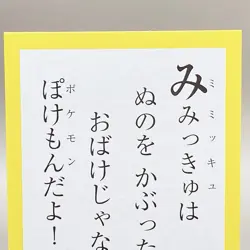 みみっきゅは
ミミッキュ
ぬのを かぶった
おばけじゃな
ぽけもんだよ！
ポケモン